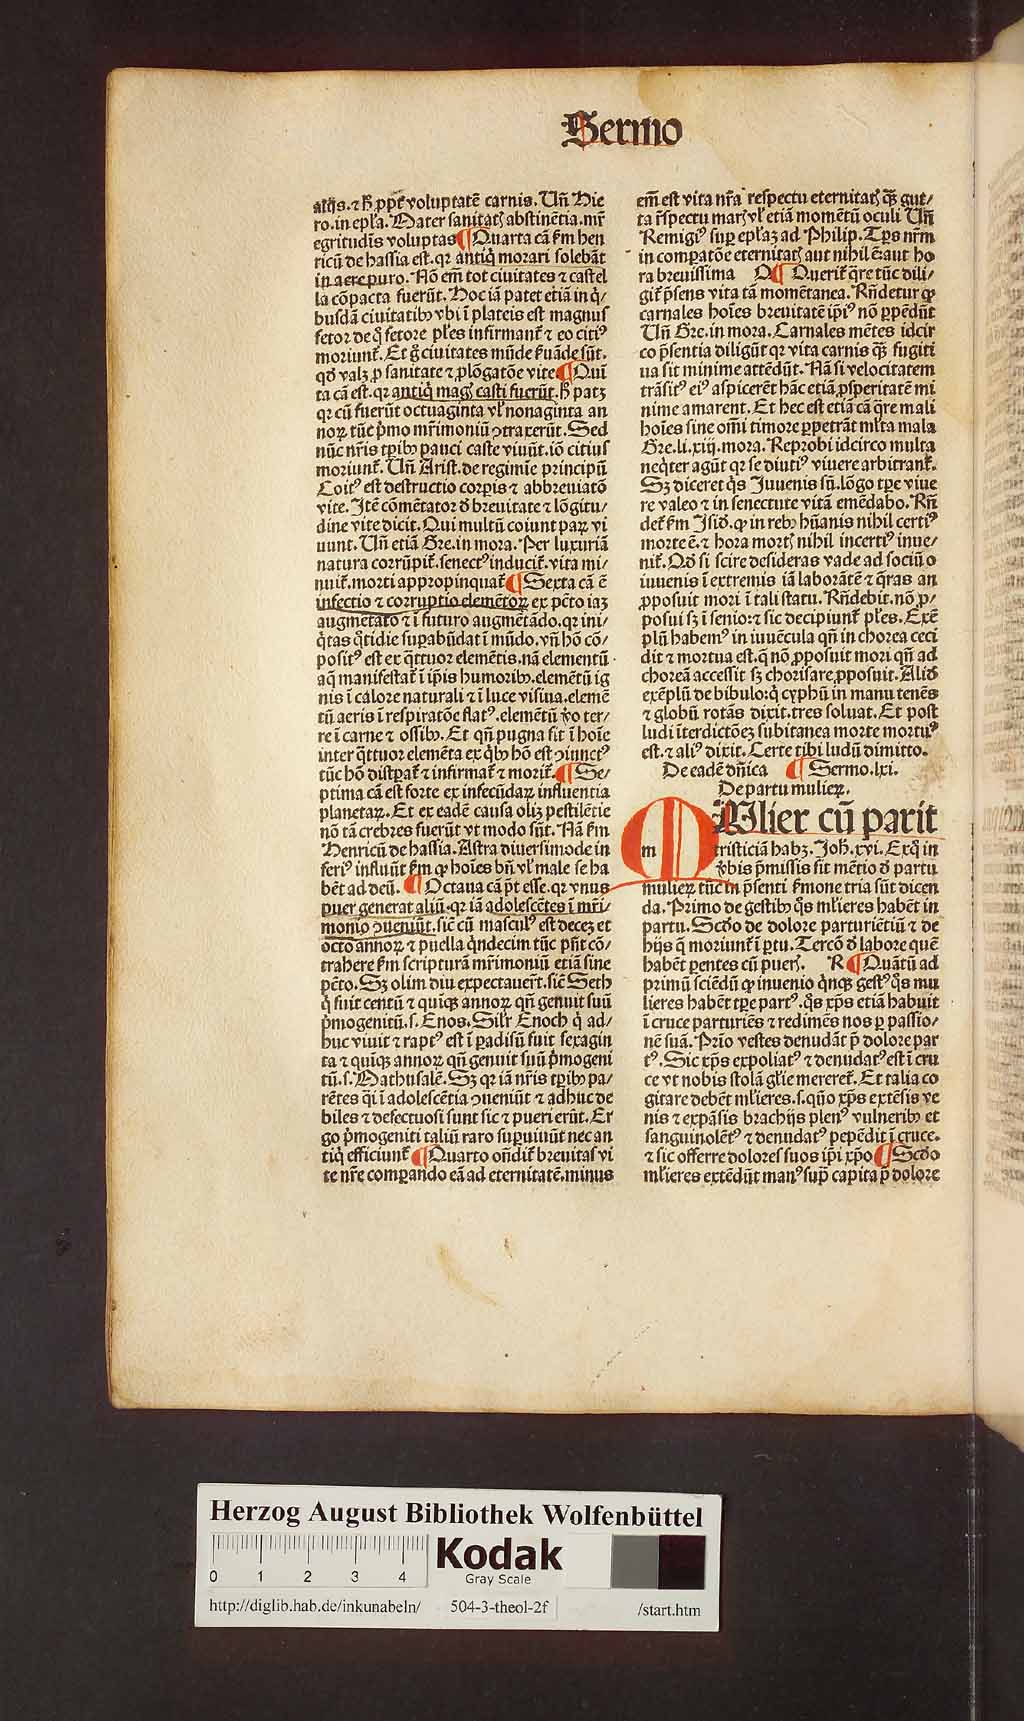 Sermo
atq̃s.⁊ h̃ ꝓpt̃ voluptatē carnis. Un̄ Hie
ro.in epl̃a. Mater sanitatꝭ abstinētia.mr̄
egritudīs voluptas ¶ Quarta cā ẜm hen
ricū de hassia est.qꝛ antiq̇ morari solebāt
in aere puro. Nō em̄ tot ciuitates ⁊ castel
la cōpacta fuerūt. Hoc iā patet etiā in q̇/
busdā ciuitatibꝰ vbi ī plateis est magnus
fetor de q̊ fetore pl̃es infirmant̃ ⁊ eo citiꝰ
moriunt̃. Et g̊ ciuitates mūde ẜuāde sūt.
qd̛ valꝫ ꝓ sanitate ⁊ ꝓlōgatōe vite ¶ Quī
ta cā est.qꝛ antiq̇ magꝭ casti fuerūt.h̃ patꝫ
qꝛ cū fuerūt octuaginta vl̃ nonaginta an
noꝝ tūc p̄mo mr̄imoniū ꝯtraxerūt. Sed
nūc nr̄is tꝑibꝰ pauci caste viuūt.iō citius
moriunt̃. Un̄ Arist.de regimīe principū
Coitꝰ est destructio corꝑis ⁊ abbreuiatō
vite. Itē cōmētator d̛ breuitate ⁊ lōgitu/
dine vite dicit. Qui multū coiunt paꝝ vi
uunt. Un̄ etiā Gre.in mora. Per luxuriā
natura corrūpit̃.senectꝰ inducit̃.vita mi/
nuit̃.morti appropinquat̃ ¶ Sexta cā ē
infectio ⁊ corruptio elemētoꝝ ex pctō iaꝫ
augmētato ⁊ ī futuro augmētādo.qꝛ ini/
q̇tas q̊tidie suꝑabūdat ī mūdo.vn̄ hō cō/
positꝰ est ex q̈ttuor elemētis.nā elementū
aq̄ manifestat̃ ī ip̄is humoribꝰ.elemētū ig
nis ī calore naturali ⁊ ī luce visiua.elemē
tū aeris ī respiratōe flatꝰ.elemētū ṽo ter/
re ī carne ⁊ ossibꝰ. Et qn̄ pugna sit ī hoīe
inter q̈ttuor elemēta ex q̇bꝰ hō est ꝯiunctꝰ
tūc hō distꝑat̃ ⁊ infirmat̃ ⁊ morit̃. ¶ Se/
ptima cā est forte ex infecūdaꝝ influentia
planetaꝝ. Et ex eadē causa oliꝫ pestilētie
nō tā crebres fuerūt vt modo sūt. Nā ẜm
Henricū de hassia. Astra diuersimode in
feriꝰ influūt ẜm ꝙ hoīes bn̄ vl̃ male se ha
bēt ad deū. ¶ Octaua cā p̄t esse.qꝛ vnus
puer generat aliū.qꝛ iā adolescētes ī mr̄i/
monio ꝯueniūt.sic̄ cū masculꝰ est deceꝫ et
octo annoꝝ ⁊ puella q̇ndecim tūc pn̄t cō/
trahere ẜm scripturā mr̄imoniū etiā sine
pctō. Sꝫ olim diu expectauer̃t.sic̄ Seth
q̇ fuit centū ⁊ quiqꝫ annoꝝ qn̄ genuit suū
p̄mogenitū.s. Enos. Sil̃r Enoch q̇ ad/
huc viuit ⁊ raptꝰ est ī ꝑadisū fuit sexagin
ta ⁊ quiqꝫ annoꝝ qn̄ genuit suū p̄mogeni
tū.s. Mathusalē. Sꝫ qꝛ iā nr̄is tꝑibꝰ pa/
rētes q̇i ī adolescētia ꝯueniūt ⁊ adhuc de
biles ⁊ defectuosi sunt sic ⁊ pueri erūt. Er
go p̄mogeniti taliū raro suꝑuiuūt nec an
tiq̇ efficiunt̃ ¶ Quarto on̄dit̃ breuitas vi
te nr̄e comꝑando eā ad eternitatē.minus
em̄ est vita nr̄a respectu eternitatꝭ qꝫ gut/
ta r̄spectu marꝭ vl̃ etiā momētū oculi Un̄
Remigiꝰ suꝑ epl̃aꝫ ad Philip. Tꝑs nr̄m
in comꝑatōe eternitatꝭ aut nihil ē aut ho
ra breuissima Q ¶ Querit̃ q̈re tūc dili/
git̃ p̄sens vita tā momētanea. Rn̄detur ꝙ
carnales hoīes breuitatē ip̄iꝰ nō ꝑpēdūt
Un̄ Gre.in mora. Carnales mētes idcir
co p̄sentia diligūt qꝛ vita carnis qꝫ fugiti
ua sit minime attēdūt. Nā si velocitatem
trāsitꝰ eiꝰ aspicerēt hāc etiā ꝓsperitatē mi
nime amarent. Et hec est etiā cā q̈re mali
hoīes sine om̄i timore ꝑpetrāt ml̃ta mala
Gre.li.xiiij.mora. Reprobi idcirco multa
neq̇ter agūt qꝛ se diutiꝰ viuere arbitrant̃.
Sꝫ diceret q̇s Iuuenis sū.lōgo tꝑe viue
re valeo ⁊ in senectute vitā emēdabo. Rn̄
det̃ ẜm Isid̛. ꝙ in rebꝰ hūanis nihil certiꝰ
morte ē.⁊ hora mortꝭ nihil incertiꝰ inue/
nit̃. Qd̛ si scire desideras vade ad sociū o
iuuenis ī extremis iā laborātē ⁊ q̈ras an
ꝓposuit mori ī tali statu. Rn̄debit.nō ꝓ/
posui sꝫ ī senio:⁊ sic decipiunt̃ pl̃es. Exē
plū habemꝰ in iuuēcula qn̄ in chorea ceci
dit ⁊ mortua est.q̄ nō ꝓposuit mori qn̄ ad
choreā accessit sꝫ chorisare ꝓposuit. Aliđ
exēplū de bibulo:q̇ cyphū in manu tenēs
⁊ globū rotās dixit.tres soluat. Et post
ludi īterdictōeꝫ subitanea morte mortuꝰ
est.⁊ aliꝰ dixit. Certe tibi ludū dimitto.
De eadē dn̄ica ¶ Sermo.lxi.
De partu mulieꝝ.
m Mulier cū parit
tristiciā habꝫ. Joh̃.xvi. Exq̊ in
ṽbis p̄missis sit mētio d̛ partu
mulieꝝ tūc in p̄senti ẜmone tria sūt dicen
da. Primo de gestibꝰ q̊s ml̃ieres habēt in
partu. Scđo de dolore parturiētiū ⁊ de
hijs q̄ moriunt̃ ī ꝑtu. Tercō d̛ labore quē
habēt ꝑentes cū puerꝭ. R ¶ Quātū ad
primū sciēdū ꝙ inuenio q̇nqꝫ gestꝰ q̊s mu
lieres habēt tꝑe partꝰ.q̊s xp̄s etiā habuit
ī cruce parturiēs ⁊ redimēs nos ꝑ passio/
nē suā. Prīo vestes denudāt p̄ dolore par
tꝰ. Sic xp̄s expoliatꝰ ⁊ denudatꝰ est ī cru
ce vt nobis stolā gl̃ie mereret̃. Et talia co
gitare debēt ml̃ieres.s.qūo xp̄s extēsis ve
nis ⁊ expāsis brachijs plenꝰ vulneribꝰ et
sanguinolētꝰ ⁊ denudatꝰ pepēdit ī cruce.
⁊ sic offerre dolores suos ip̄i xp̄o ¶ Scđo
ml̃ieres extēdūt manꝰ suꝑ capita p̄ dolore
Herzog August Bibliothek Wolfenbüttel
0 1 2 3 4
Kodak
Gray Scale
http://diglib.hab.de/inkunabeln/ 504-3-theol-2f /start.htm